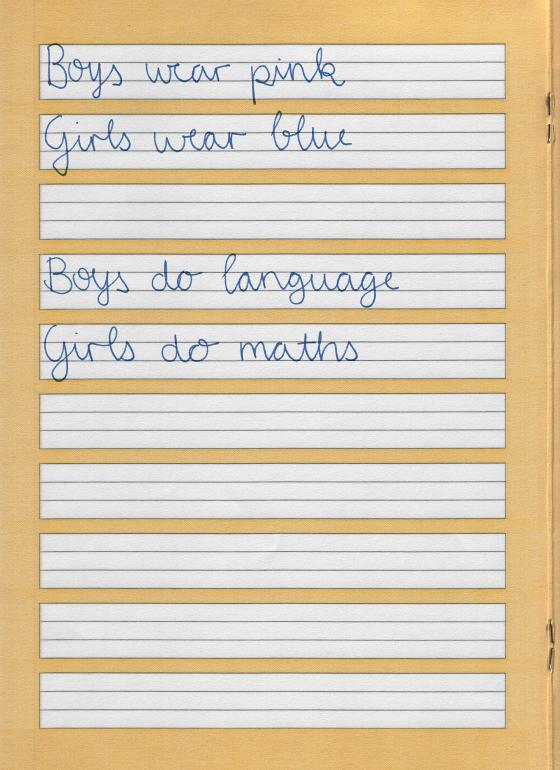 Boys wear pink
Girls wear blue
Boys do language
Girls do maths